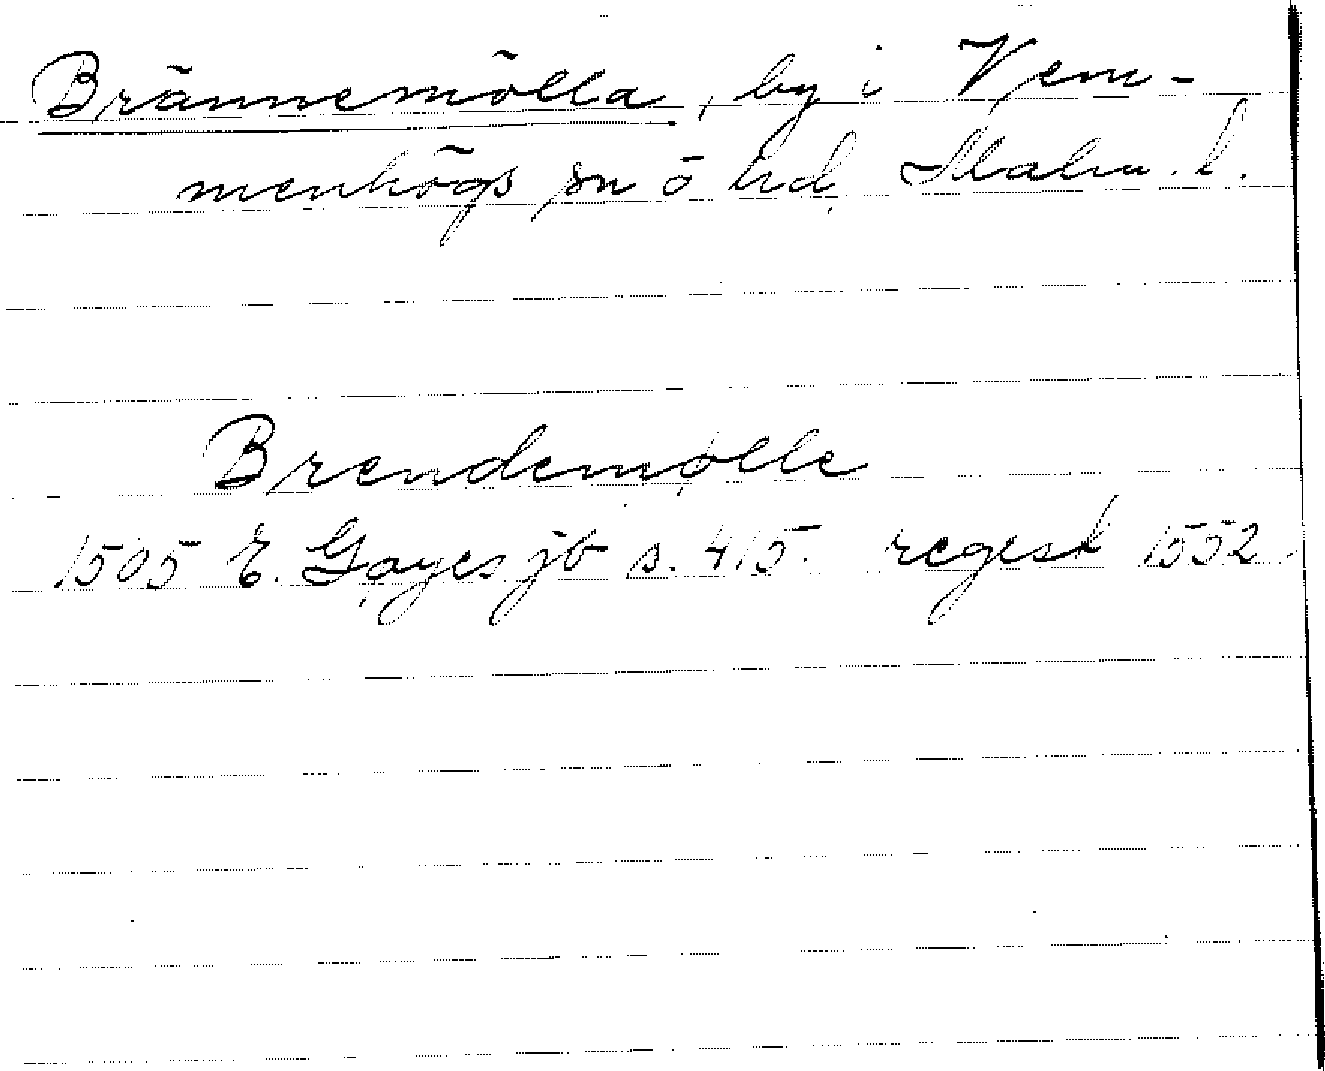 Brännemölla, by i Vem-
menhögs sn o hd, Malm. l.
Brendemølle
1505 E. Gøyes jb s. 415. regest 1552.